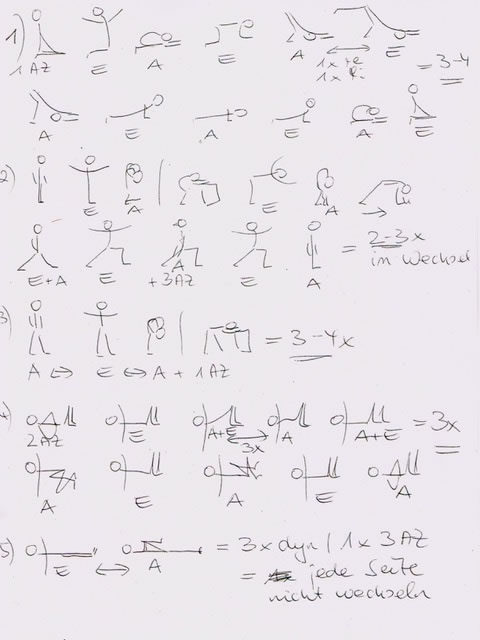 1)
1 AZ E A E A E
1x re
1x li
= 3-4
A E A E A E
2)
E A A
E+A E A E A = 2-3x
+3AZ
in Wechsel
3)
= 3-4x
A ↔ E ↔ A + 1AZ
2AZ E A+E A A+E = 3x
3x
A E A E A
5)
E ↔ A = 3x dyn / 1x 3 AZ
= jede Seite
nicht wechseln